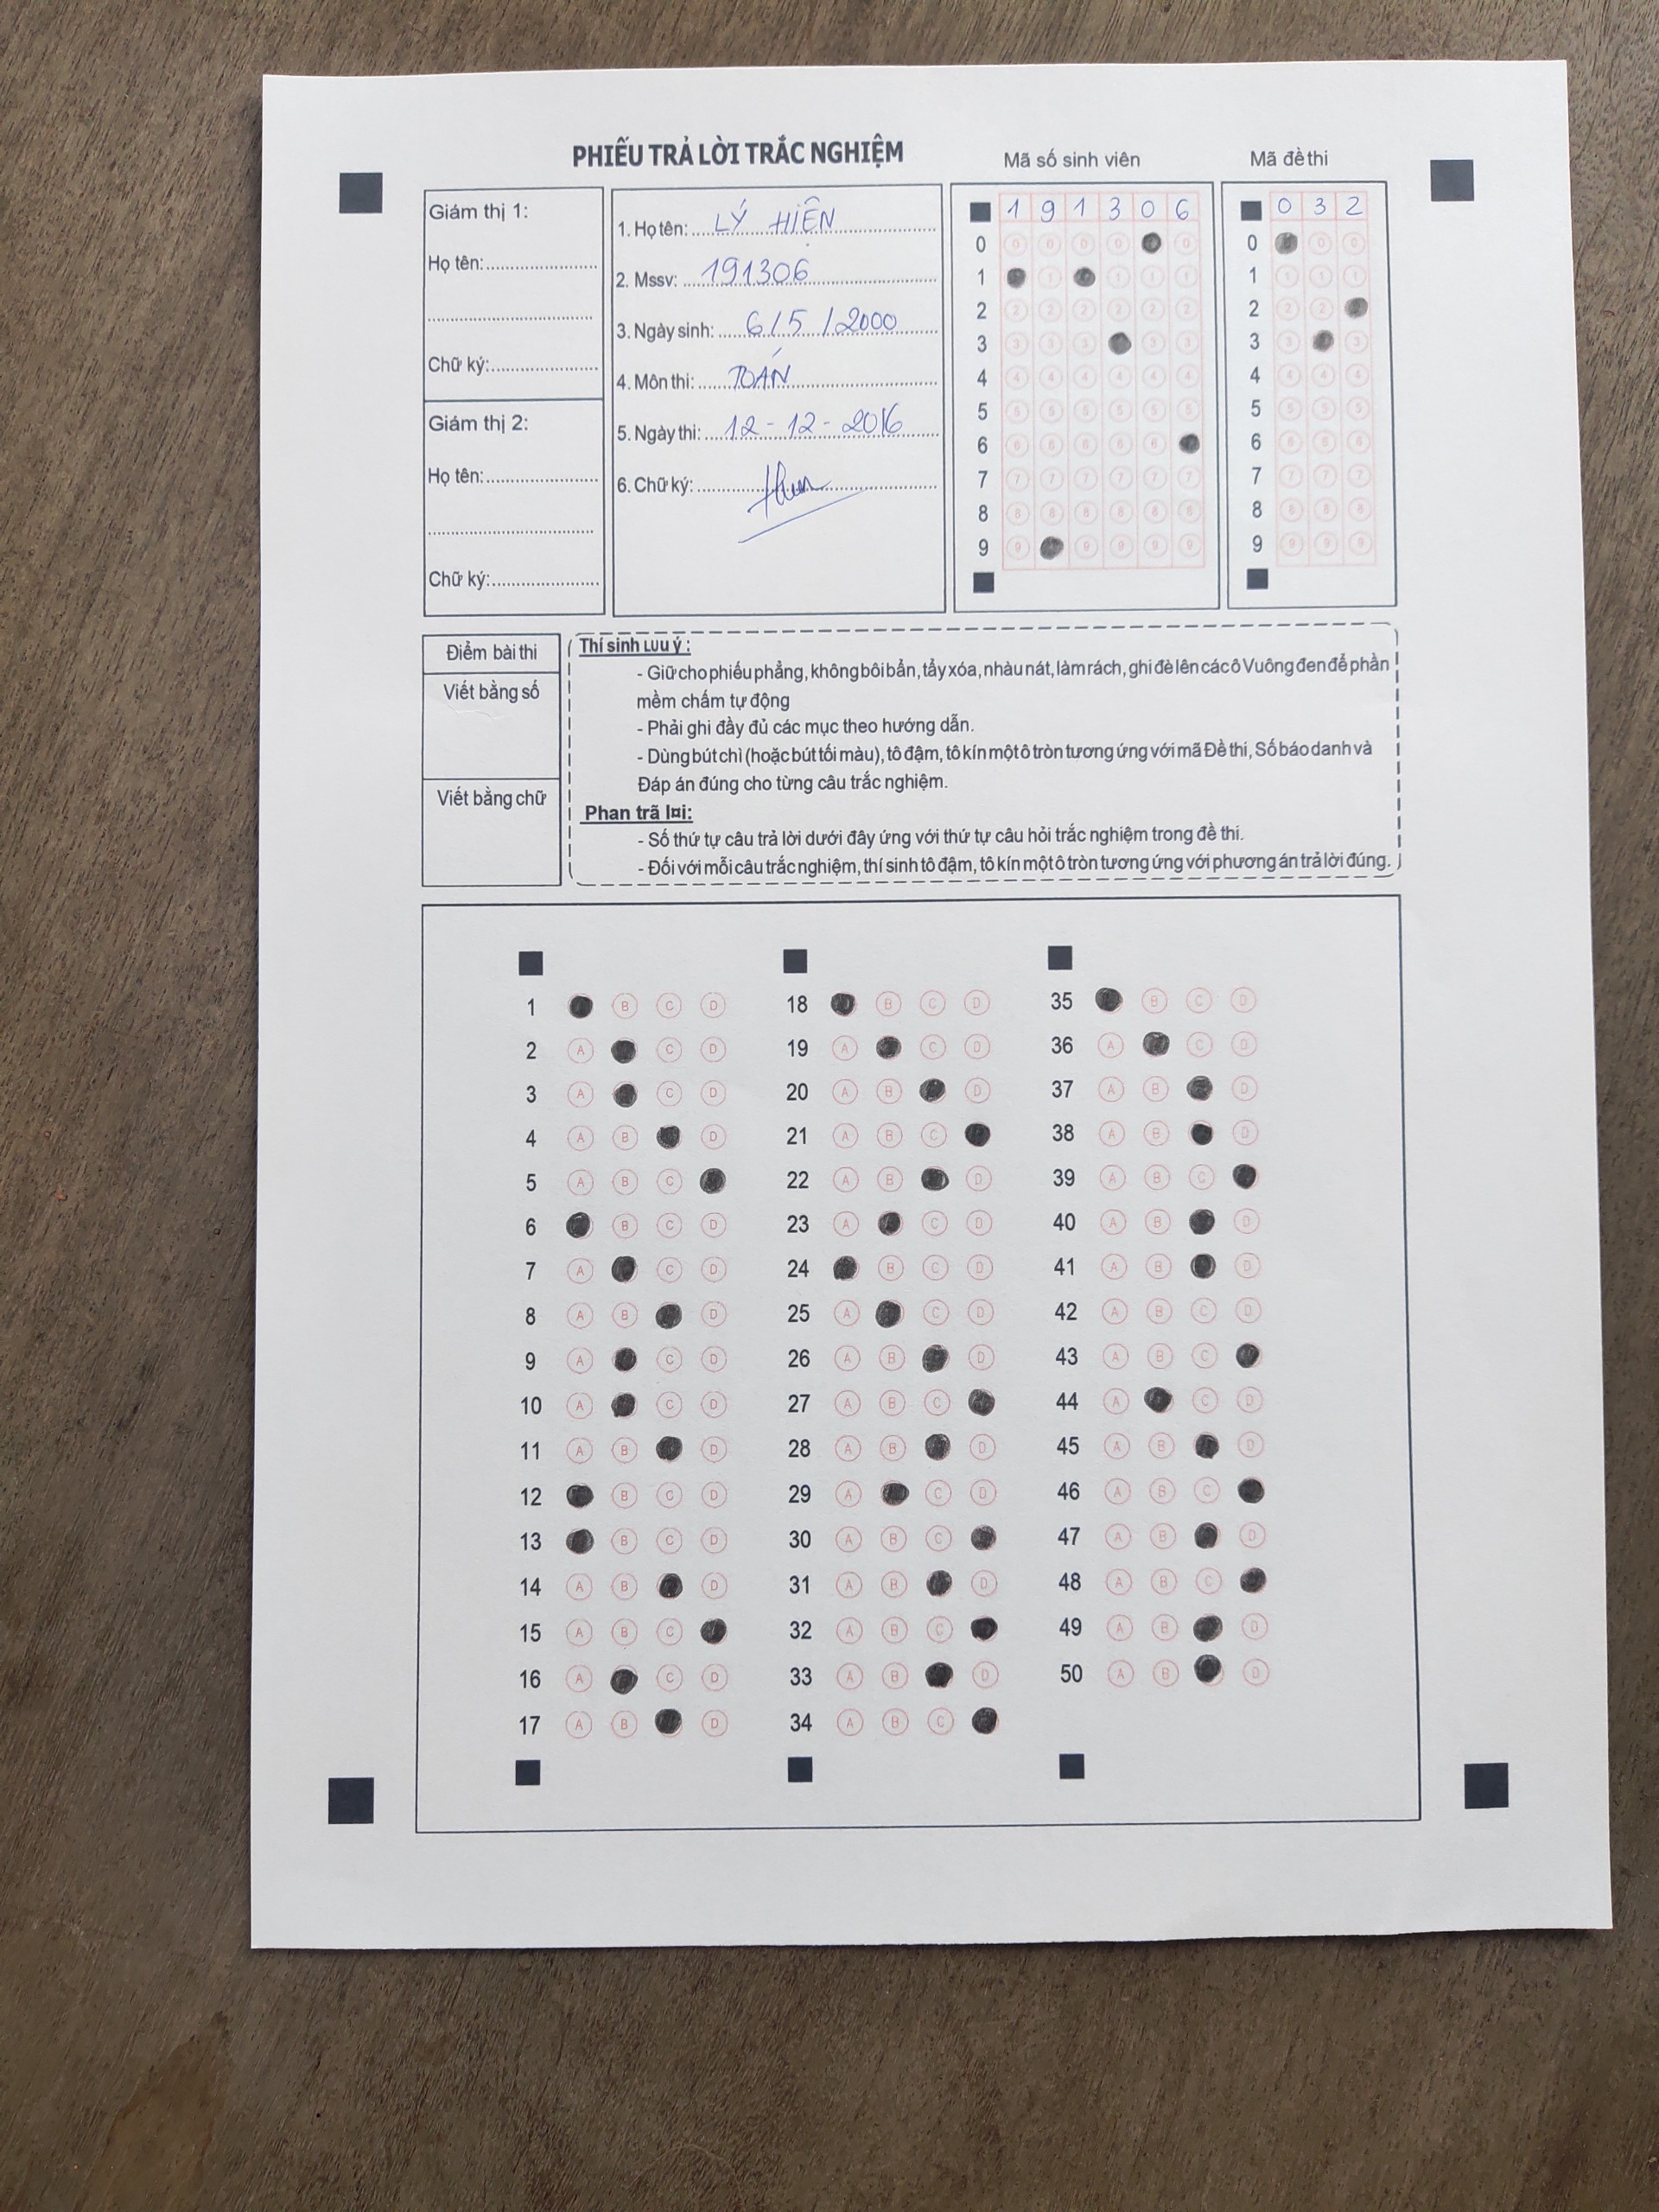 PHIẾU TRẢ LỜI TRẮC NGHIỆM
Mã số sinh viên
Mã đề thi
Giám thị 1:
Họ tên:
Chữ ký:
Giám thị 2:
Họ tên:
Chữ ký:
1. Họ tên: LÝ HIỆN
2. Mssv: 191306
3. Ngày sinh: 6/5/2000
4. Môn thi: TOÁN
5. Ngày thi: 12-12-2016
6. Chữ ký:
1 9 1 3 0 6
0 0 0 0 0
1 1 1 1 1
2 2 2 2 2 2 2
3 3 3 3 3 3
4 4 4 4 4 4 4
5 5 5 5 5 5 5
6 6 6 6 6 6
7 7 7 7 7 7 7
8 8 8 8 8 8 8
9 9 9 9 9 9
0 3 2
0 0 0
1 1 1 1
2 2 2
3 3 3
4 4 4 4
5 5 5 5
6 6 6 6
7 7 7 7
8 8 8 8
9 9 9 9
Điểm bài thi
Viết bằng số
Viết bằng chữ
Thí sinh LUU ý :
- Giữ cho phiếu phẳng, không bôi bẩn, tẩy xóa, nhàu nát, làm rách, ghi đè lên các ô Vuông đen để phần
mềm chấm tự động
- Phải ghi đầy đủ các mục theo hướng dẫn.
- Dùng bút chì (hoặc bút tối màu), tô đậm, tô kín một ô tròn tương ứng với mã Đề thi, Số báo danh và
Đáp án đúng cho từng câu trắc nghiệm.
Phan trã l¤i:
- Số thứ tự câu trả lời dưới đây ứng với thứ tự câu hỏi trắc nghiệm trong đề thi.
- Đối với mỗi câu trắc nghiệm, thí sinh tô đậm, tô kín một ô tròn tương ứng với phương án trả lời đúng.
1 B C D
2 A C D
3 A C D
4 A B D
5 A B C
6 B C D
7 A C D
8 A B D
9 A C D
10 A C D
11 A B D
12 B C D
13 B C D
14 A B D
15 A B C
16 A C D
17 A B D
18 B C D
19 A C D
20 A B D
21 A B C
22 A B D
23 A C D
24 B C D
25 A C D
26 A B D
27 A B C
28 A B D
29 A C D
30 A B C
31 A B D
32 A B C
33 A B D
34 A B C
35 B C D
36 A C D
37 A B D
38 A B D
39 A B C
40 A B D
41 A B D
42 A B C D
43 A B C
44 A C D
45 A B D
46 A B C
47 A B D
48 A B C
49 A B D
50 A B D